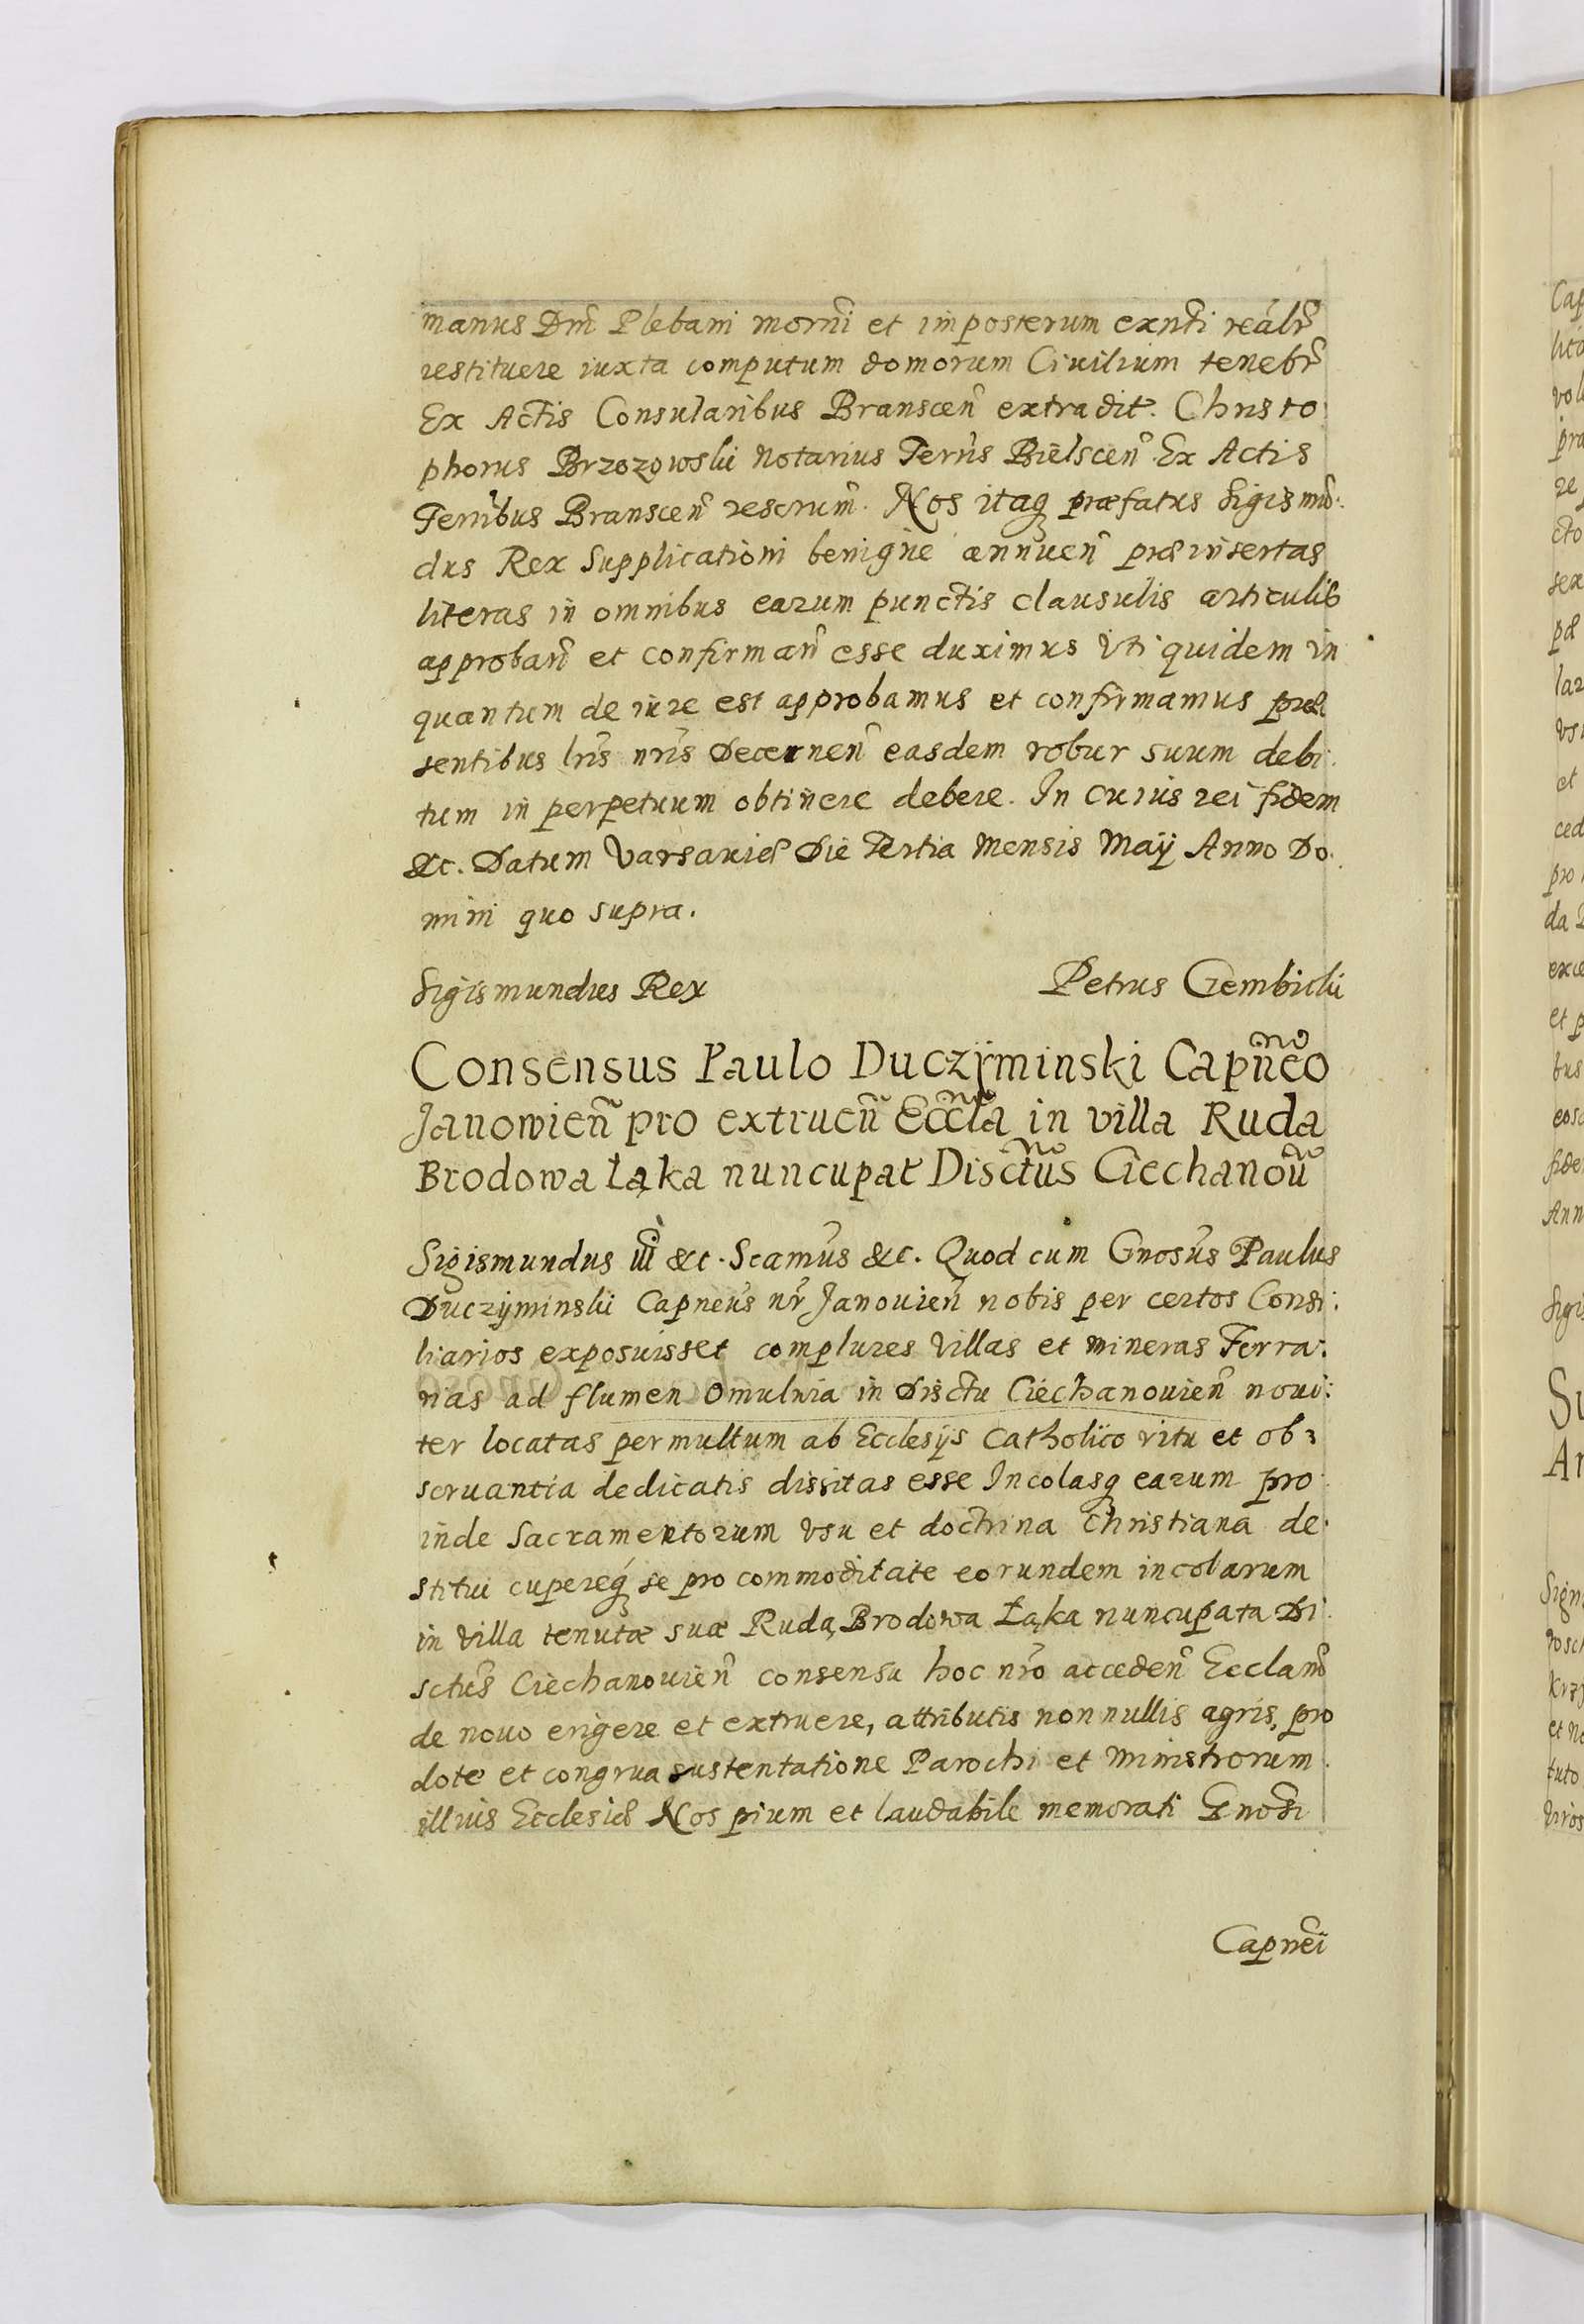 manus Dm̃ Plebani morñi et imposterum exñti realr̃
restituere iuxta computum domorum Ciuilium tenebr̃
Ex Actis Consularibus Branscen̄ extradit. Christo:
phorus Brzozowski Notarius Terrīs Bielscen̄ Ex Actis
Terribus Branscen̄ rescrum̄. Nos itaq præfatus Sigismũ:
dus Rex Supplicationi benigne annuen̄ præinsertas
literas in omnibus earum punctis clausulis articulis
approban̄ et confirman̄ esse duximus Vti quidem in
quantum de iure est approbamus et confirmamus præ
sentibus lrīs nrīs Decernen̄ easdem robur suum debi:
tum in perpetuum obtinere debere. In cuius rei fidem
&c. Datum Varsauiæ Die Tertia Mensis Maÿ Anno Do:
mini quo supra.
Sigismundus Rex Petrus Gembicki
Consensus Paulo Duczÿminski Capñeo
Janowieñ pro extrueñ Eccl̃a in villa Ruda
Brodowa Łąka nuncupat Disctũs Ciechanoũ
Sigismundus iii &c. Scamũs &c. Quod cum Gnosũs Paulus
Duczÿminski Capneũs nr̃ Janouien̄ nobis per certos Consi:
liarios exposuisset complures Villas et mineras Ferra:
rias ad flumen Omulwia in Disctu Ciechanouien̄ noui:
ter locatas permultum ab Ecclesÿs Catholico ritu et ob:
seruantia dedicatis dissitas esse Incolasq earum pro:
inde Sacramentorum vsu et doctrina Christiana de:
stitui cupereq́ se pro commoditate eorundem incolarum
in Villa tenutæ suæ Ruda, Brodowa Łąka nuncupata Di:
sctũs Ciechanouien̄ consensu hoc nrõ acceden̄ Ecclam̄
de nouo erigere et extruere, attributis non nullis agris, pro
dote et congrua sustentatione Parochi et Ministrorum
illius Ecclesiæ Nos pium et laudabile memorati Gnosi
Capnẽi